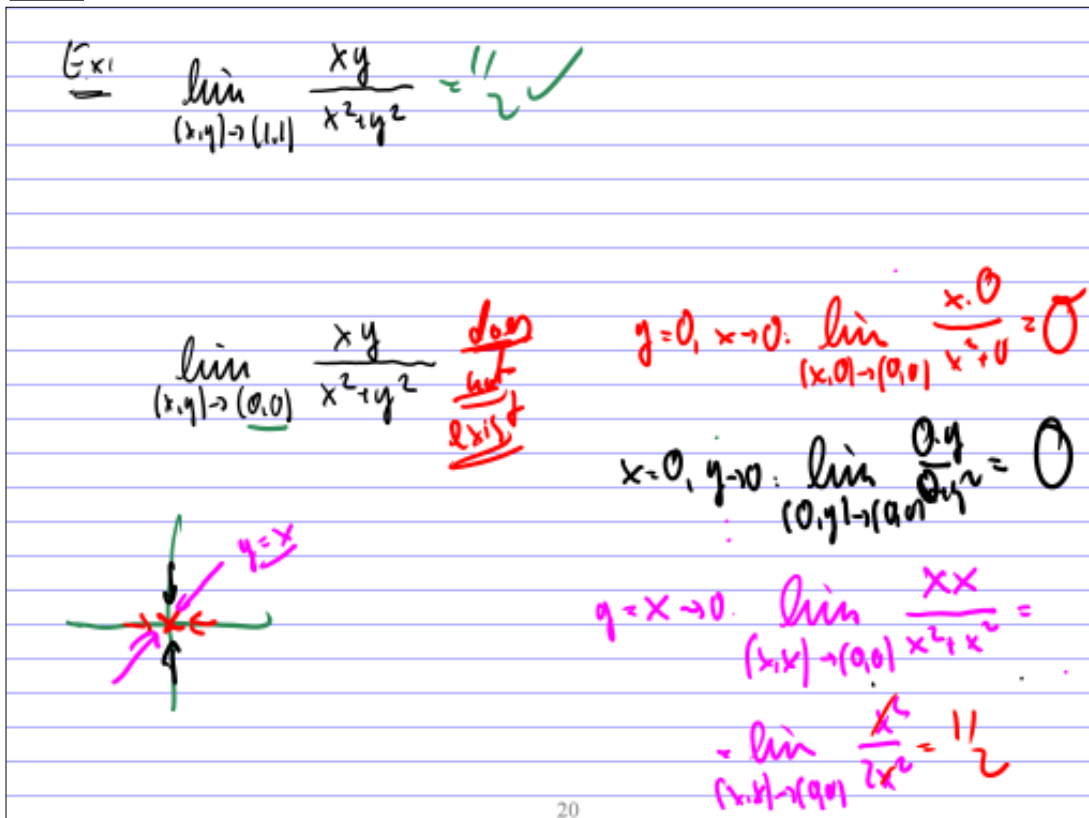 Ex:
lim (x,y)→(1,1) xy / x²+y² = 1/2 ✓
lim (x,y)→(0,0) xy / x²+y² does not exist
y=0, x→0: lim (x,0)→(0,0) x·0 / x²+0 = 0
x=0, y→0: lim (0,y)→(0,0) 0·y / 0+y² = 0
y=x
y=x→0: lim (x,x)→(0,0) xx / x²+x² =
= lim (x,x)→(0,0) x² / 2x² = 1/2
20